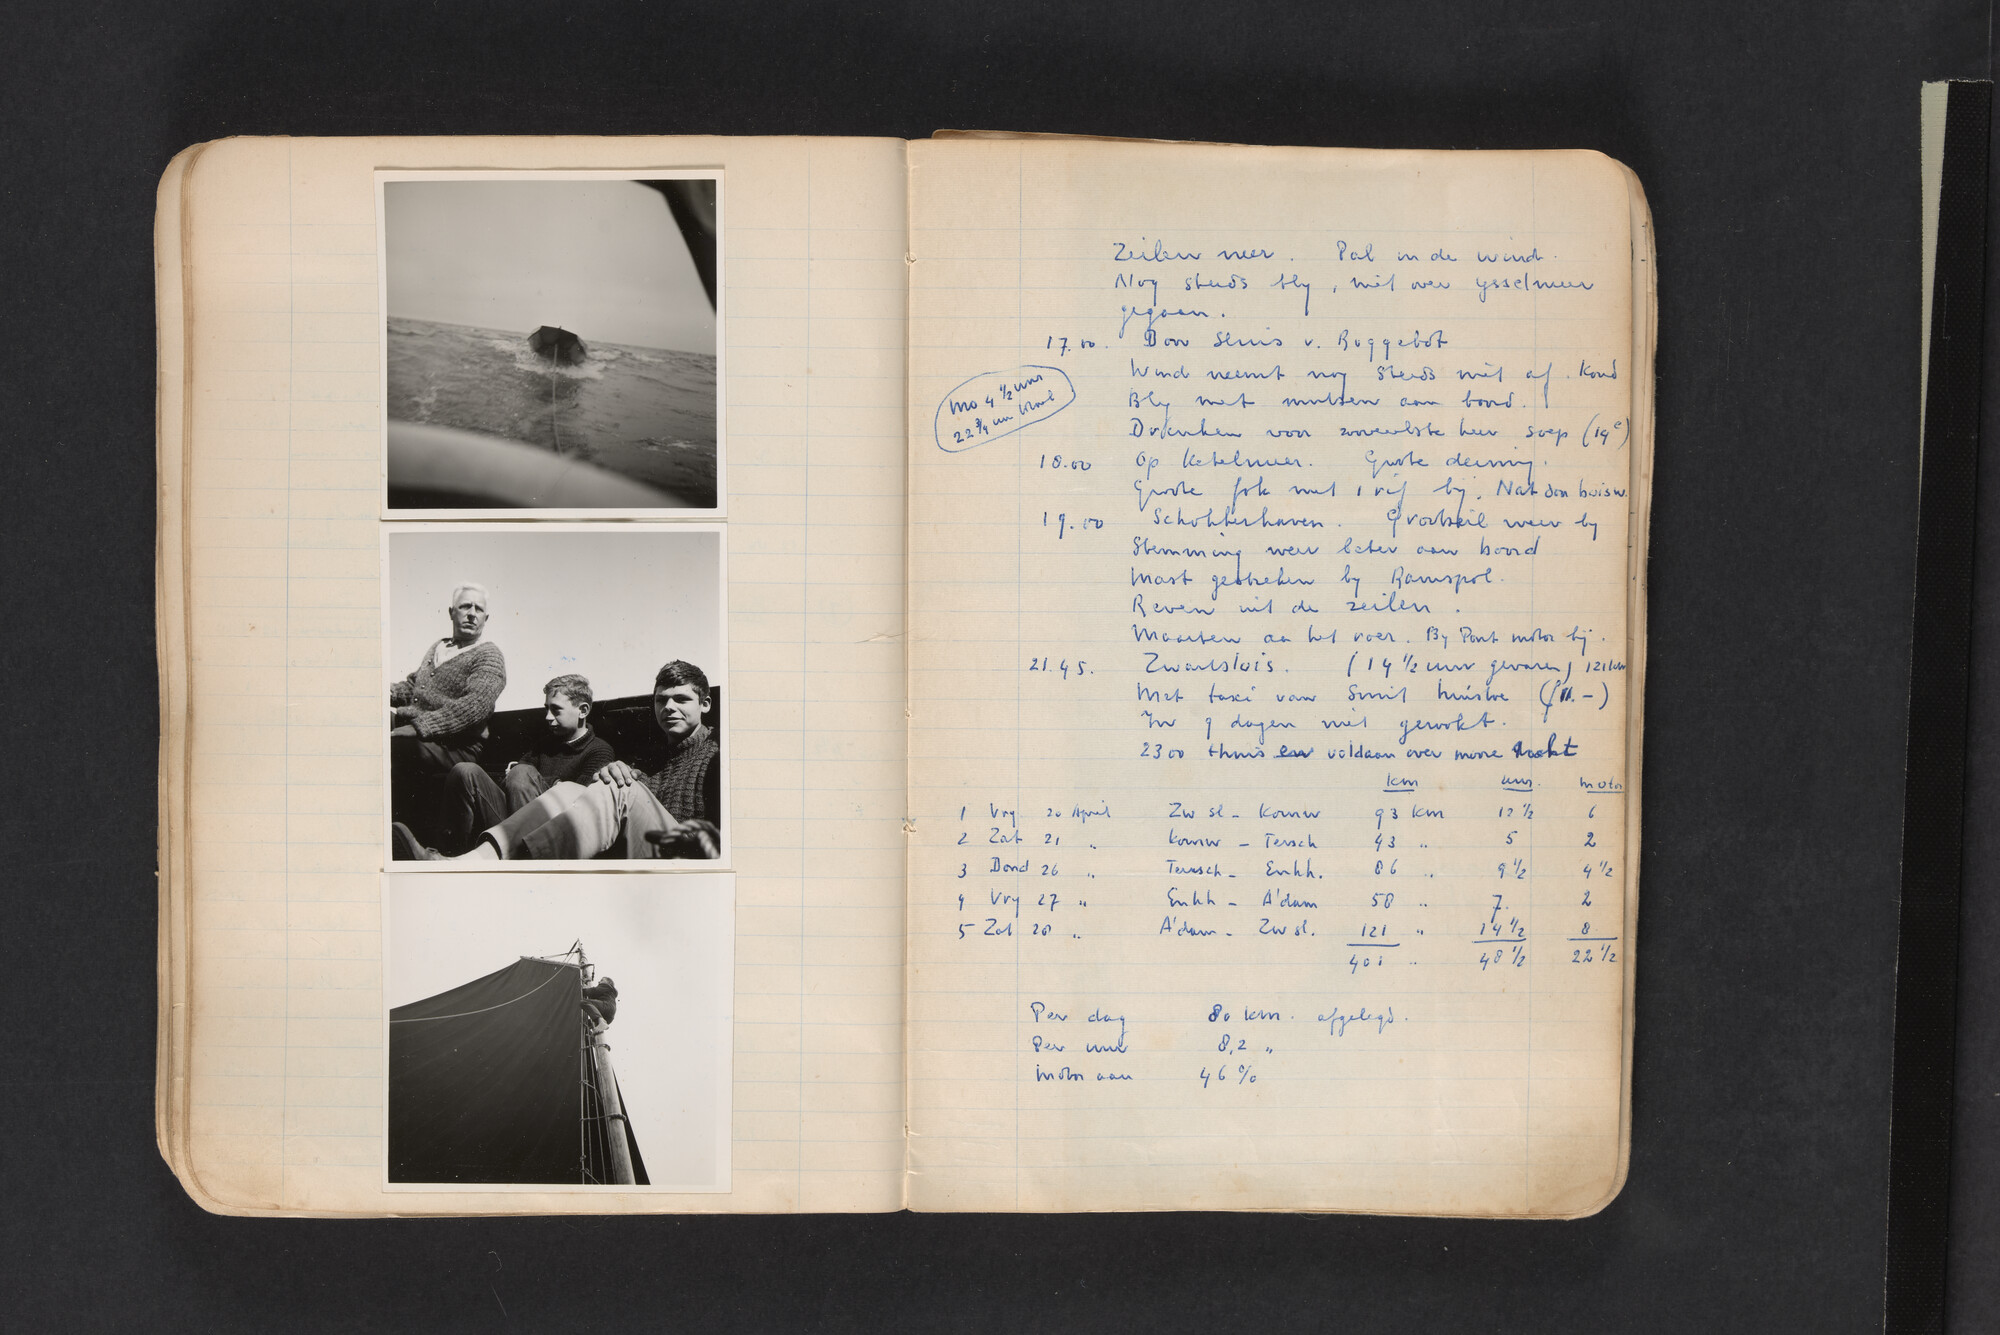 Zeilen neer. Pal in de wind.
Nog steeds bly, niet over ysselmeer
gegaan.
17.00. Door Sluis v. Roggebot
Wind neemt nog steeds niet af. Koud
Bly met mutsen aan boord.
Mo 4 1/2 uur
22 3/4 uur totaal
Drinken voor zoveelste keer soep (14e)
18.00 Op Ketelmeer. Grote deining.
Grote fok met 1 rif by. Nat dan buisw.
19.00 Schokkerhaven. Grootzeil weer by
Stemming weer beter aan boord
Mast gestreken by Ramspol.
Reven uit de zeilen.
Maarten aa het roer. By Punt motor bij.
21.45. Zwartsluis. (14 1/2 uur gevaren) 121 km
Met taxi van Smit huistoe (f 11.-)
In 9 dagen niet gerookt.
2300 thuis en voldaan over mooie tocht
km uur. motor
1 Vry 20 April Zw sl - Kornw 93 km 12 1/2 6
2 Zat 21 „ Kornw - Tersch 43 „ 5 2
3 Dond 26 „ Tersch - Enkh. 86 „ 9 1/2 4 1/2
4 Vry 27 „ Enkh - A'dam 58 „ 7. 2
5 Zat 28 „ A'dam - Zw sl. 121 „ 14 1/2 8
401 „ 48 1/2 22 1/2
Per dag 80 km. afgelegd.
Per uur 8,2 „
Motor aan 46 %